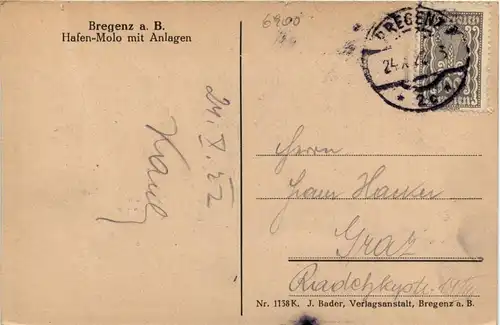 Bregenz a. B.
Hafen-Molo mit Anlagen
6900
BREGENZ
24. X. 22
* 2c *
24. X. 22
Herrn
Graz
Radetzkystr.
Nr. 1138K. J. Bader, Verlagsanstalt, Bregenz a. B.